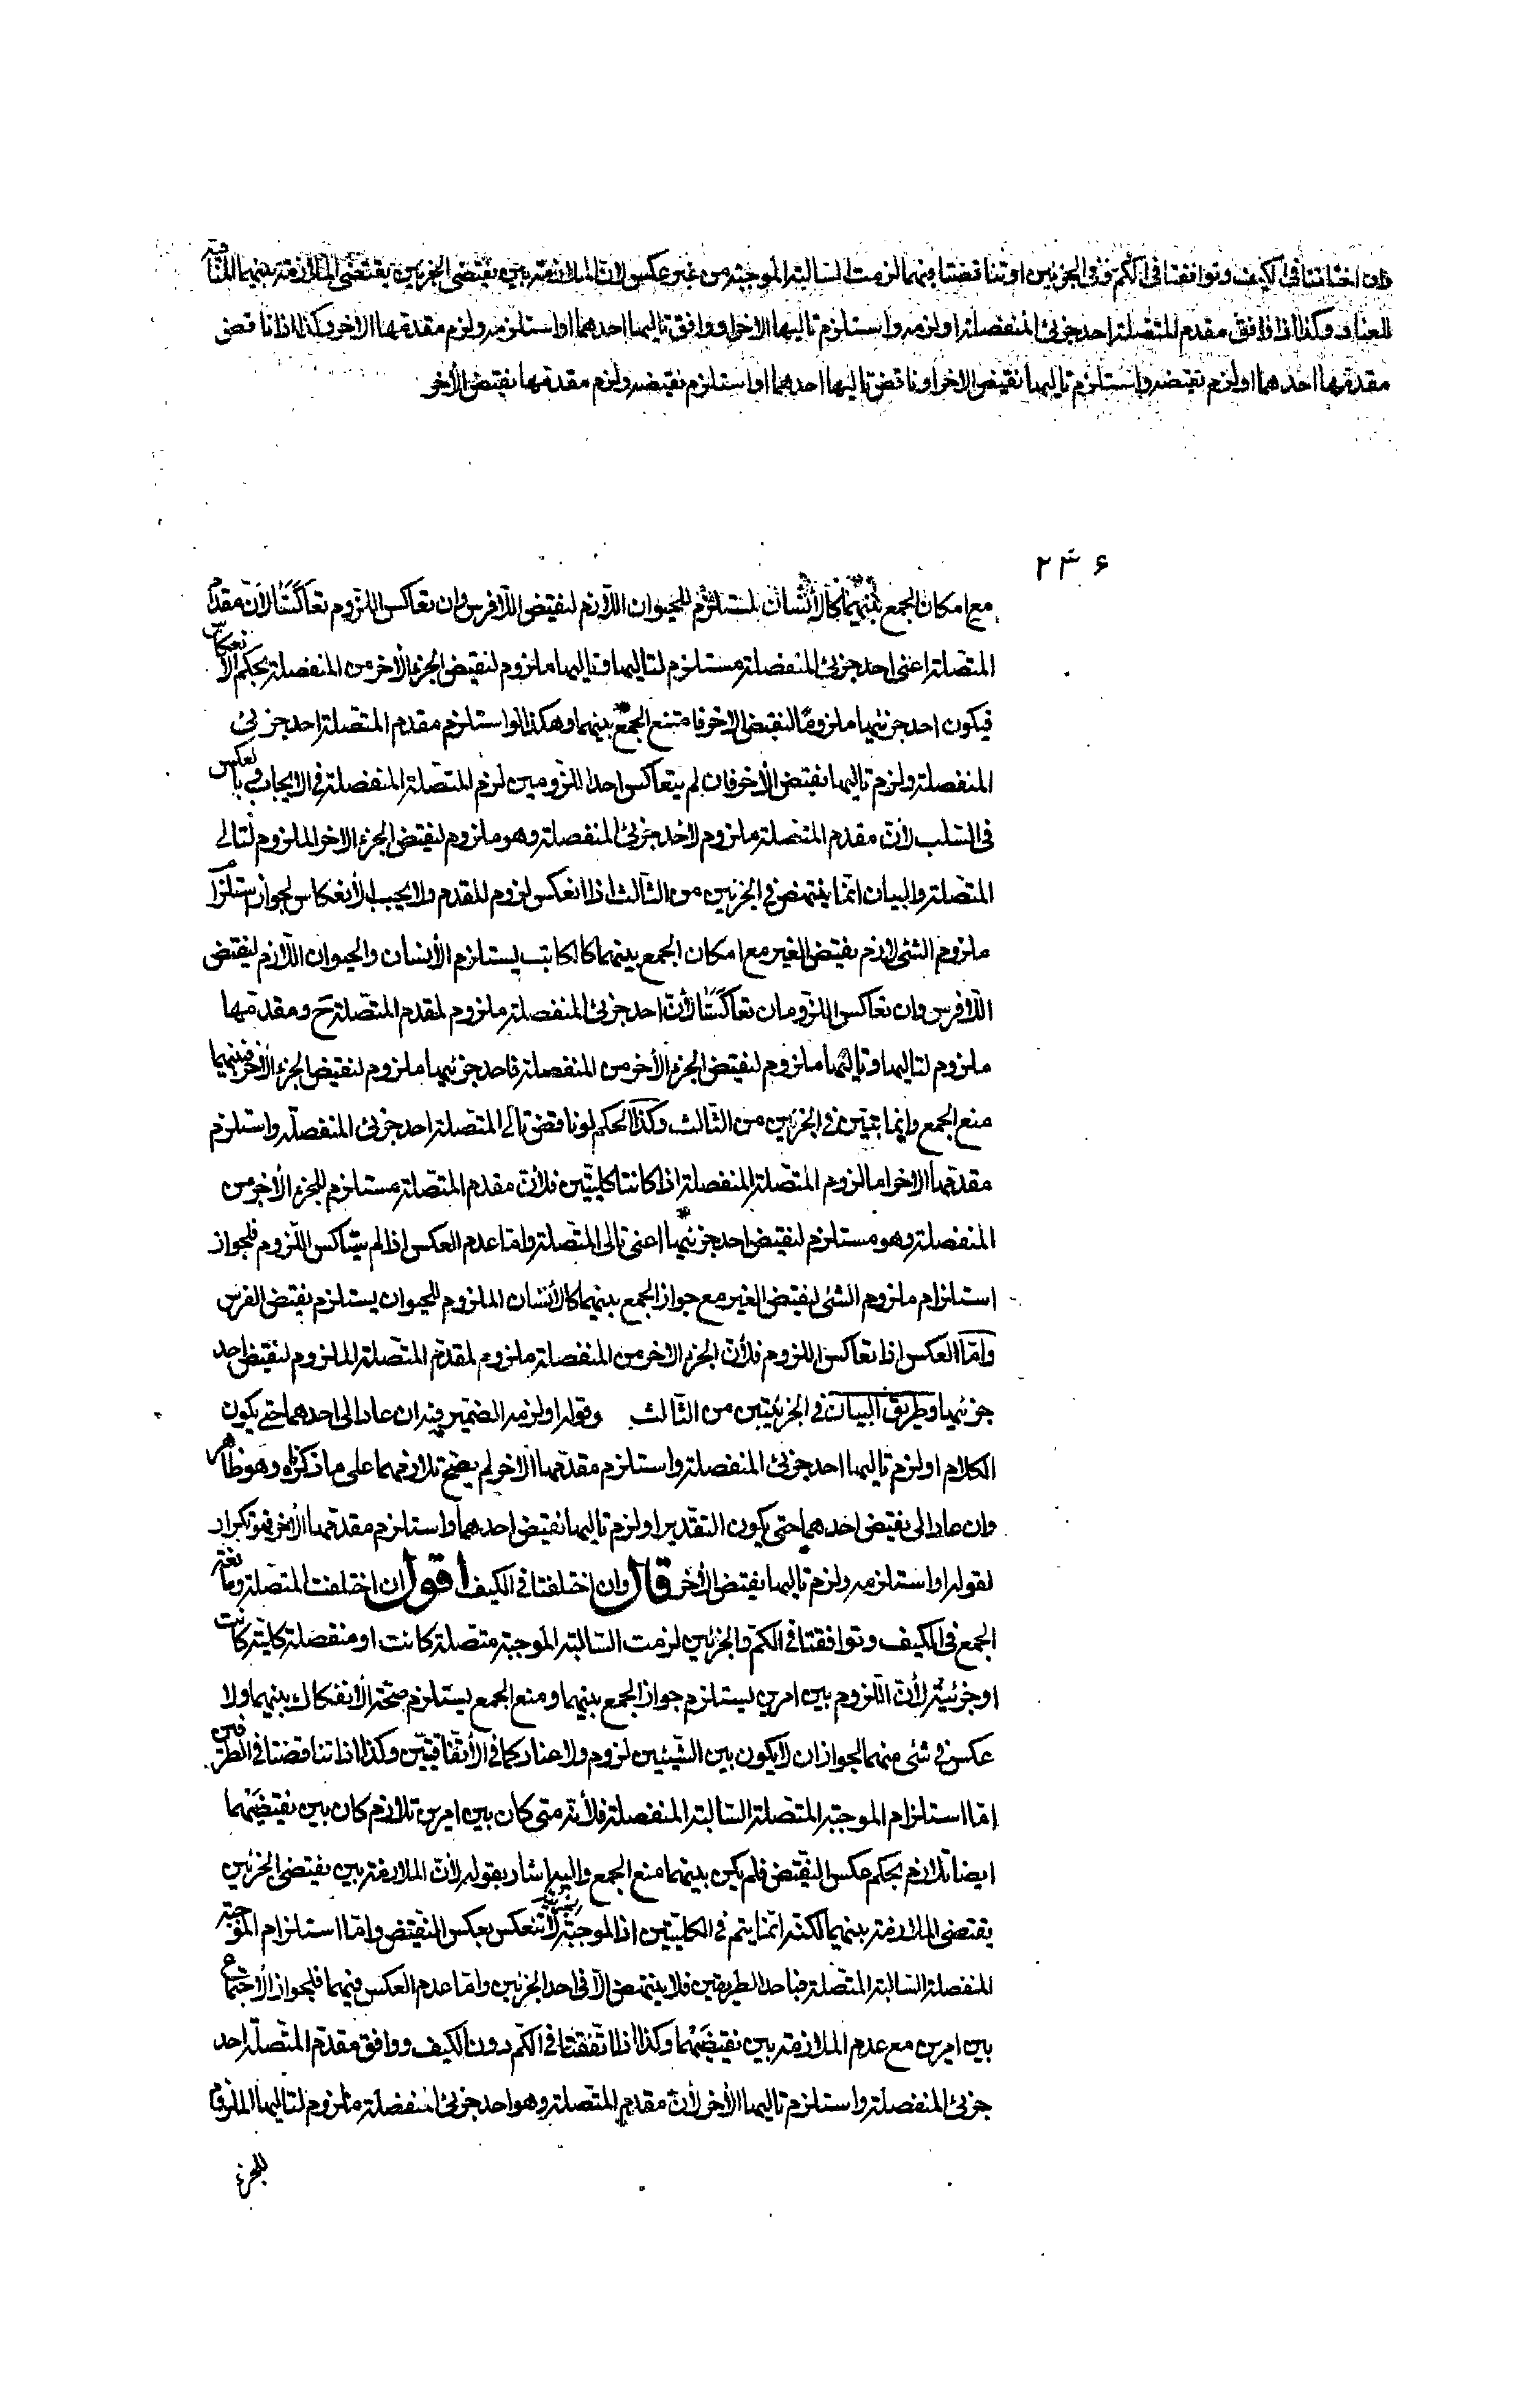 وان اختلفتا في الكيف وتوافقتا في الكم وفي الجزئين او تناقضتا فيهما لزمت السالبة الموجبة من غير عكس لان الملازمة بين نقيضي الجزئين يقتضي الملازمة بينهما المنافية
للعناد وكذا اذا وافق مقدم المتصلة احد جزئي المنفصلة او لزمه واستلزم تاليها الاخر او وافق تاليها احدهما او استلزمه ولزم مقدمها الاخر وكذا اذا ناقض
مقدمها احدهما او لزم نقيضه واستلزم تاليها نقيض الاخر او ناقض تاليها احدهما او استلزم نقيضه ولزم مقدمها نقيض الأخر
۲۳۶
مع امكان الجمع بينهما كالأنسان يستلزم للحيوان اللّازم لنقيض اللّافرس وان تعاكس اللزوم تعاكستا لأنّ مقدم
المتصلة اعنى احد جزئي المنفصلة مستلزم لتاليها وتاليها ملزوم لنقيض الجزء الأخر من المنفصلة بحكم الأنعكاس
فيكون احد جزئيها ملزومًا لنقيض الاخر فامتنع الجمع بينهما وهكذا لو استلزم مقدم المتصلة احد جزئي
المنفصلة ولزم تاليها نقيض الأخر فان لم يتعاكس احد اللزومين لزم المتصلة المنفصلة في الايجاب وبالعكس
في السّلب لأنّ مقدم المتصلة ملزوم لأحد جزئي المنفصلة وهو ملزوم لنقيض الجزء الاخر الملزوم لتالي
المتصلة والبيان انّما ينتهض في الجزئين من الثّالث اذا انعكس لزوم للمقدم ولا يجب الأنعكاس لجواز استلزام
ملزوم الشئ لازم نقيض الغير مع امكان الجمع بينهما كالكاتب يستلزم الأنسان والحيوان اللّازم لنقيض
اللّافرس وان تعاكس اللزومان تعاكستا لأنّ احد جزئي المنفصلة ملزوم لمقدم المتصلة ح ومقدمها
ملزوم لتاليها وتاليها ملزوم لنقيض الجزء الأخر من المنفصلة فاحد جزئيها ملزوم لنقيض الجزء الأخر فبينهما
منع الجمع وانما يتبيّن في الجزئين من الثّالث وكذا الحكم لو ناقض تالي المتصلة احد جزئي المنفصلة واستلزم
مقدمها الاخر امّا لزوم المتصلة المنفصلة اذا كانتا كليتين فلأنّ مقدم المتصلة مستلزم للجزء الأخر من
المنفصلة وهو مستلزم لنقيض احد جزئيها اعنى تالى المتصلة وامّا عدم العكس اذا لم يتعاكس اللّزوم فلجواز
استلزام ملزوم الشئ لنقيض الغير مع جواز الجمع بينهما كالأنسان الملزوم للحيوان يستلزم نقيض الفرس
وامّا العكس اذا تعاكس اللزوم فلأنّ الجزء الاخر من المنفصلة ملزوم لمقدم المتصلة الملزوم لنقيض احد
جزئيها وطريق البيان في الجزئيتين من الثّالث وقوله او لزمه الضمير فيه ان عاد الى احدهما حتى يكون
الكلام او لزم تاليها احد جزئي المنفصلة واستلزم مقدمها الاخر لم يصح تلازمهما على ما ذكره وهو ظاهر
وان عاد الى نقيض احدهما حتى يكون التقدير او لزم تاليها نقيض احدهما واستلزم مقدمها الأخر فهو تكرار
لقوله او استلزمه ولزم تاليها نقيض الأخر قال وان اختلفتا في الكيف اقول ان اختلفت المتصلة ومانعة
الجمع في الكيف وتوافقتا في الكمّ والجزئين لزمت السّالبة الموجبة متصلة كانت او منفصلة كليّة كانت
او جزئيّة لأنّ اللّزوم بين امرين يستلزم جواز الجمع بينهما ومنع الجمع يستلزم صحّة الأنفكاك بينهما ولا
عكس في شئ منهما لجواز ان لا يكون بين الشّيئين لزوم ولا عناد كما في الأتّفاقيّتين وكذا اذا تناقضتا في الطّرفين
امّا استلزام الموجبة المتصلة السّالبة المنفصلة فلأنّه متى كان بين امرين تلازم كان بين نقيضيهما
ايضا تلازم بحكم عكس النقيض فلم يكن بينهما منع الجمع واليه اشار بقوله لأنّ الملازمة بين نقيضي الجزئين
يقتضي الملازمة بينهما لكنّه انّما يتم في الكليّتين اذ الموجبة الجزئية لا تنعكس بعكس النقيض وامّا استلزام الموجبة
المنفصلة السّالبة المتصلة فباحد الطريقين فلا ينتهض الّا في احد الجزئين وامّا عدم العكس فيهما فلجواز الأجتماع
بين امرين مع عدم الملازمة بين نقيضيهما وكذا اذا اتّفقتا في الكم دون الكيف ووافق مقدم المتصلة احد
جزئي المنفصلة واستلزم تاليها الأخر لأنّ مقدم المتصلة وهو احد جزئي المنفصلة ملزوم لتاليها الملزوم
للجزء